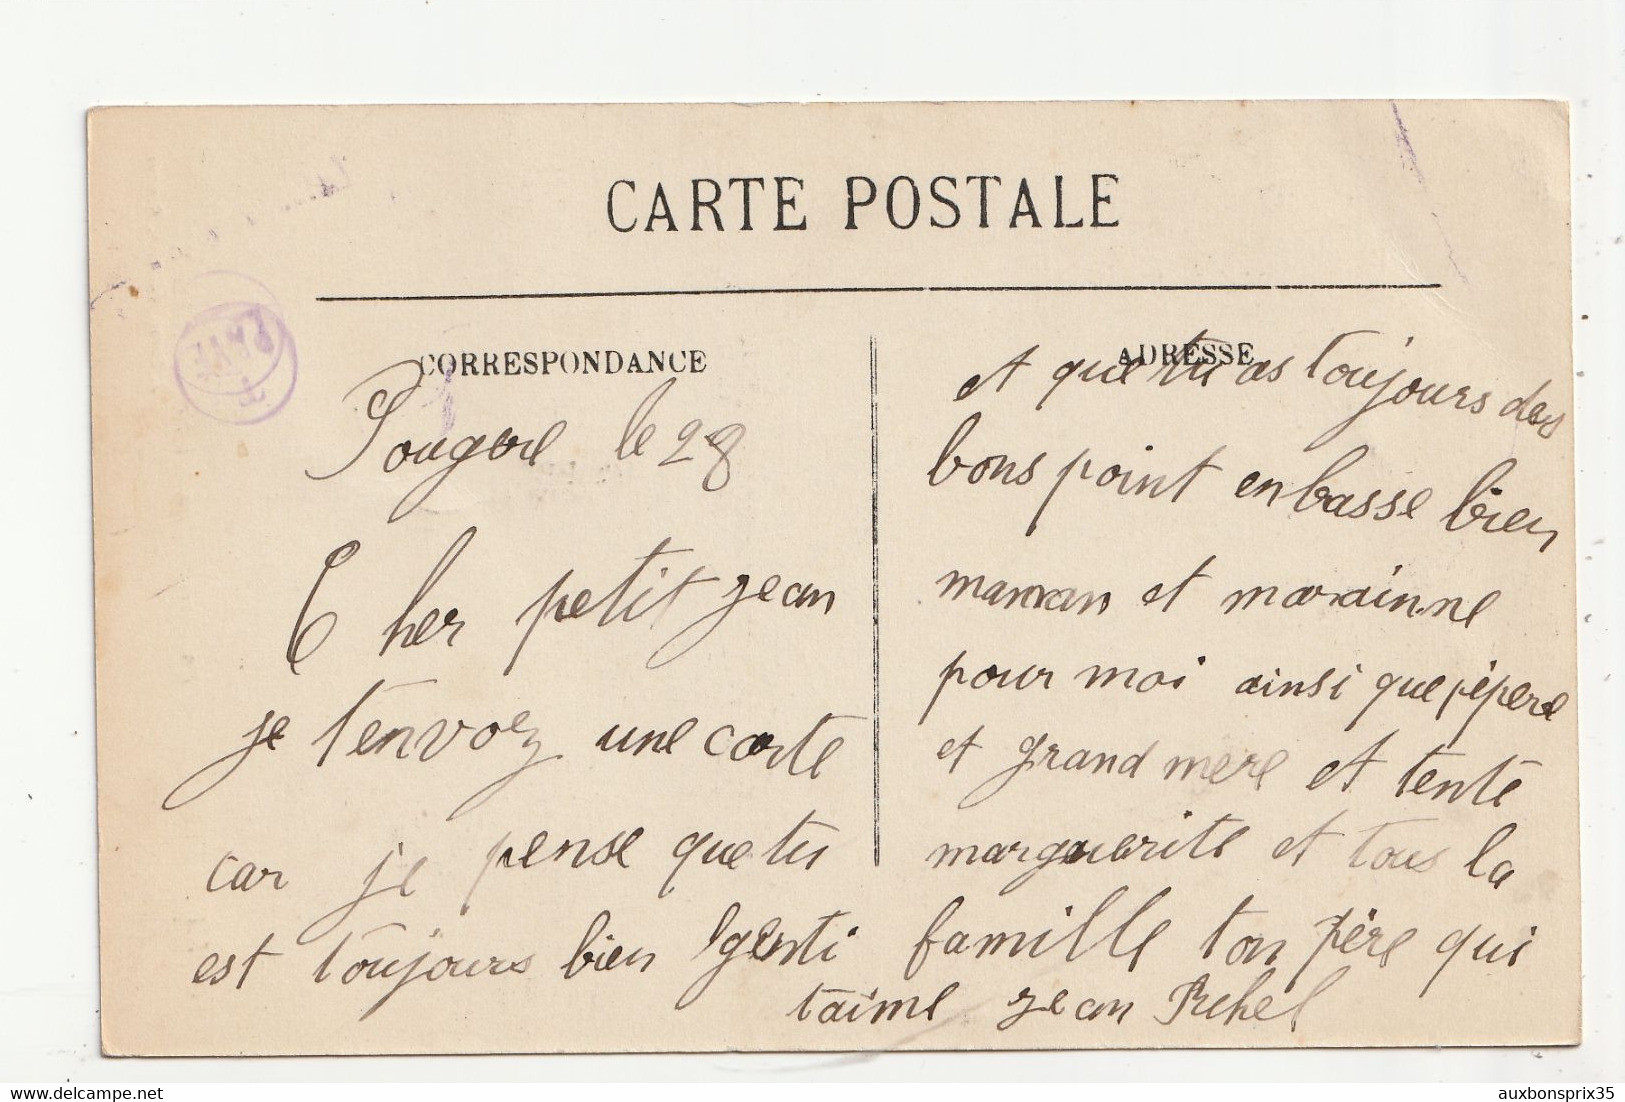 CARTE POSTALE
CORRESPONDANCE
le 28
Cher petit jean
je tenvoez une carte
car je pense que tu
est toujours bien genti
ADRESSE
et que tu as toujours des
bons point enbasse bien
maman et marainne
pour moi ainsi que pépere
et grand mere et tente
marguerite et tous la
famille ton père qui
taime jean
PAYE
auxbonsprix35